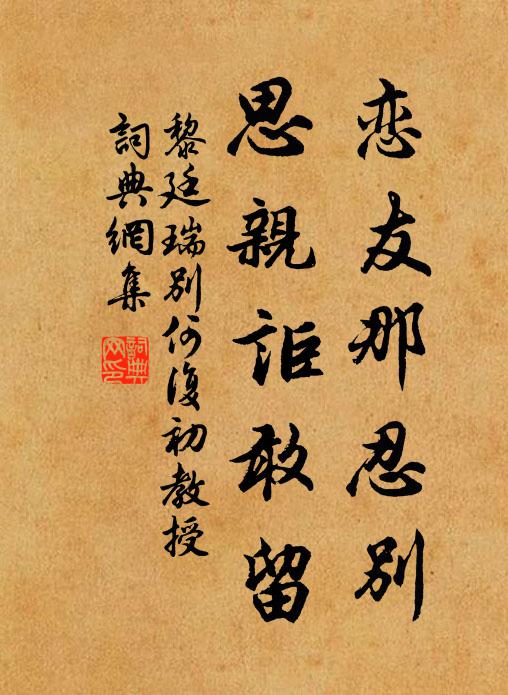 恋友那忍别
思親詎敢留
黎廷瑞别何復初教授
詞典網集
詞典
网印